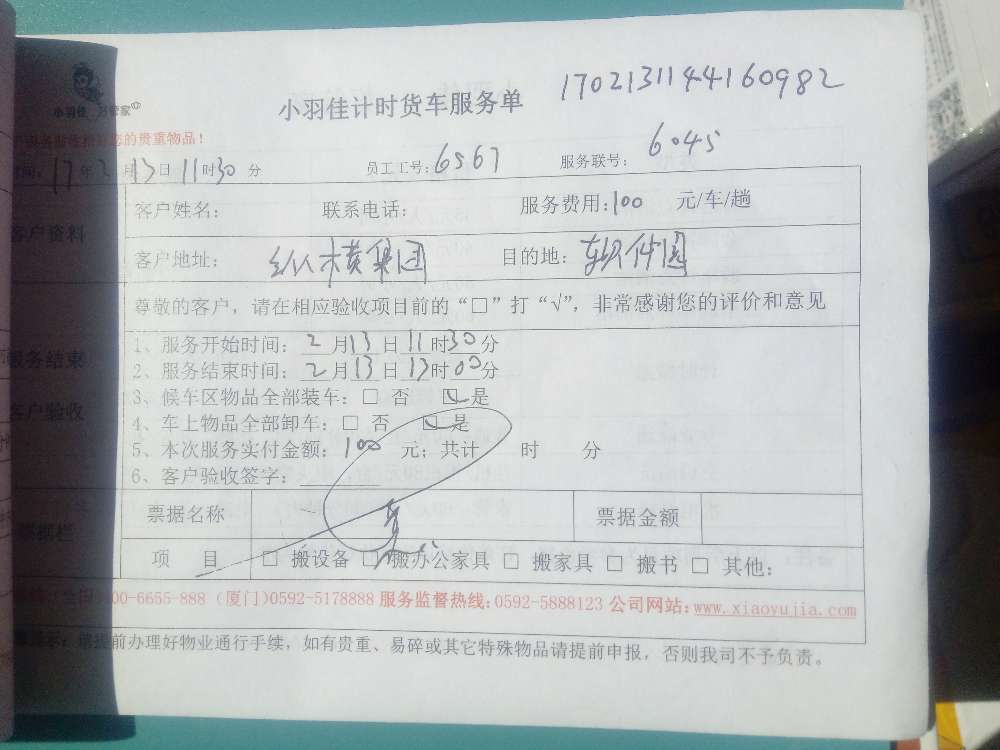 小羽佳 万管家
小羽佳计时货车服务单 1702131144160982
您的贵重物品！
时间：17年2月13日11时30分 员工工号：6567 服务联号：6045
客户资料
客户姓名： 联系电话： 服务费用：100 元/车/趟
客户地址：纵横集团 目的地：软件园
尊敬的客户，请在相应验收项目前的“□”打“√”，非常感谢您的评价和意见
服务结束
客户验收
1、服务开始时间：2月13日11时30分
2、服务结束时间：2月13日13时00分
3、候车区物品全部装车：□ 否 ☑ 是
4、车上物品全部卸车：□ 否 ☑ 是
5、本次服务实付金额：100 元；共计 时 分
6、客户验收签字：
票据栏
票据名称 票据金额
项 目 □ 搬设备 ☑ 搬办公家具 □ 搬家具 □ 搬书 □ 其他：
00-6655-888 (厦门)0592-5178888 服务监督热线：0592-5888123 公司网站：www.xiaoyujia.com
提前办理好物业通行手续，如有贵重、易碎或其它特殊物品请提前申报，否则我司不予负责。